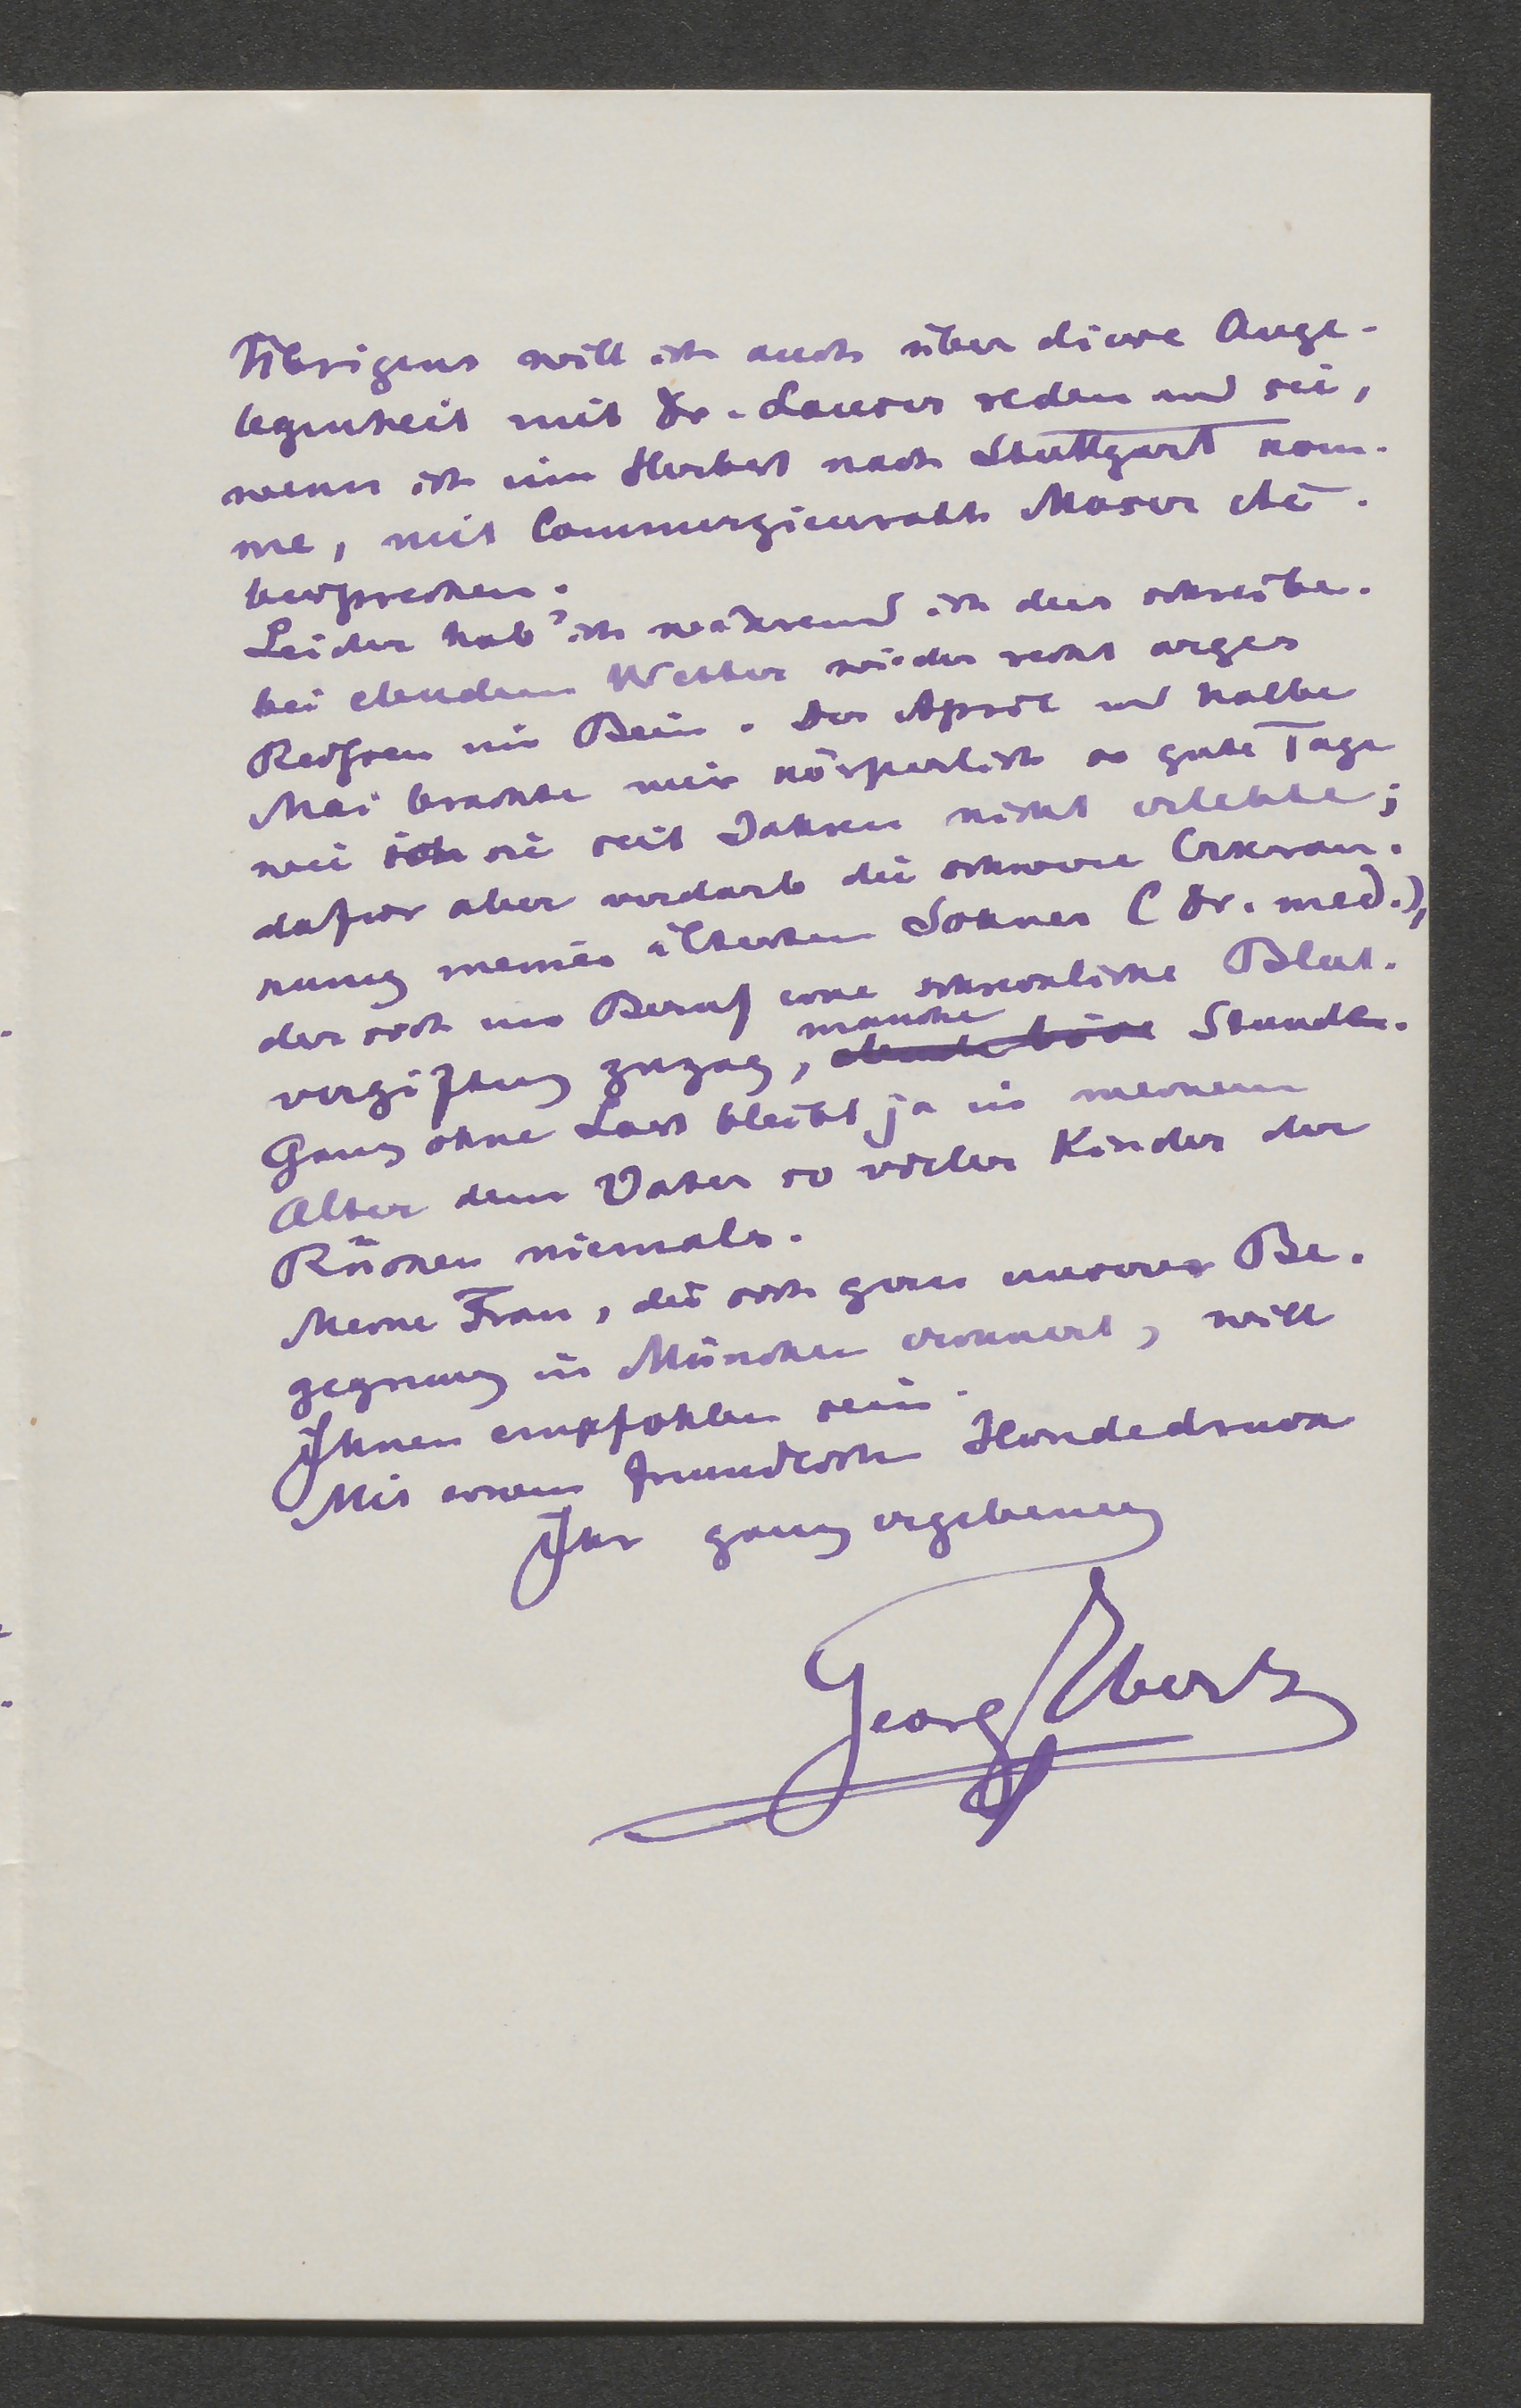 Übrigens will ich auch über diese Ange-
legenheit mit Dr. Lauser reden und sie,
wenn ich im Herbst nach Stuttgart kom-
me, mit Commerzienrath Moser etc.
besprechen.
Leider hab' ich während ich dies schreibe.
bei elendem Wetter wieder recht arges
Reißen im Bein. Der April und halbe
Mai brachte mir körperlich so gute Tage
wie ich sie seit Jahren nicht erlebte;
dafür aber verdarb die schwere Erkran-
kung meines ältesten Sohnes (Dr. med.),
der sich im Beruf eine schreckliche Blut-
vergiftung zuzog, manche Stunde.
Ganz ohne Last bleibt ja in meinem
Alter dem Vater so vieler Kinder der
Rücken niemals.
Meine Frau, die sich gern unserer Be-
gegnung in München erinnert, will
Ihnen empfohlen sein.
Mit einem freundlich Händedruck
Ihr ganz ergebener
Georg Ebers